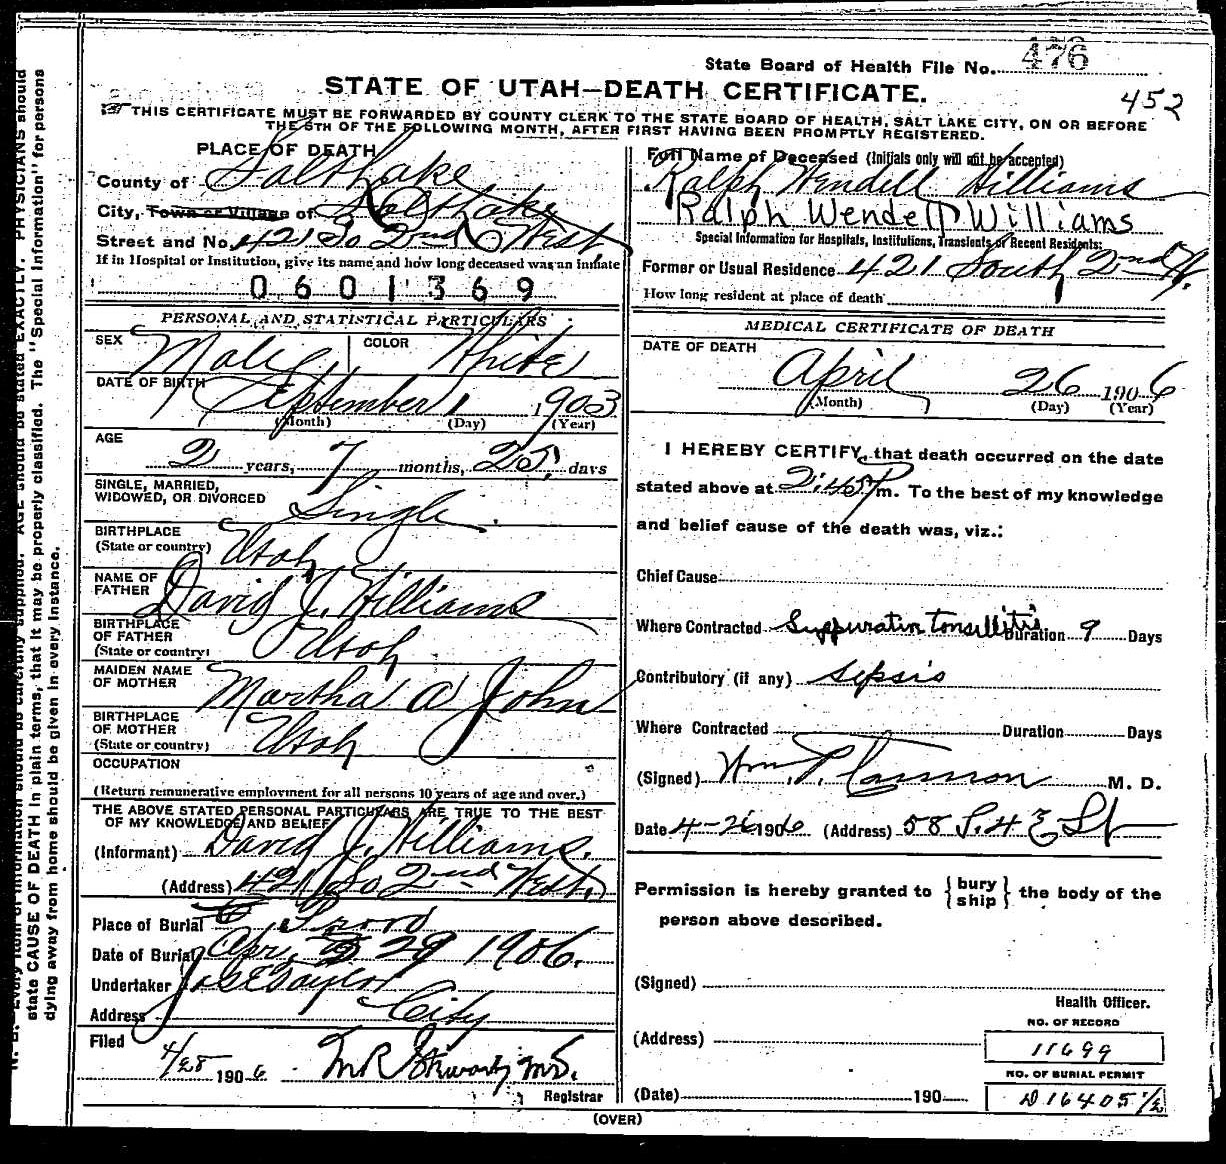 State Board of Health File No. 476
STATE OF UTAH—DEATH CERTIFICATE.
452
THIS CERTIFICATE MUST BE FORWARDED BY COUNTY CLERK TO THE STATE BOARD OF HEALTH, SALT LAKE CITY, ON OR BEFORE
THE 5TH OF THE FOLLOWING MONTH, AFTER FIRST HAVING BEEN PROMPTLY REGISTERED.
PLACE OF DEATH
County of Salt Lake
City, Town or Village of Salt Lake
Street and No. 421 So 2nd West
If in Hospital or Institution, give its name and how long deceased was an inmate
0601369
PERSONAL AND STATISTICAL PARTICULARS
SEX Male COLOR White
DATE OF BIRTH September 1 1903
(Month) (Day) (Year)
AGE
2 years, 7 months, 25 days
SINGLE, MARRIED,
WIDOWED, OR DIVORCED Single
BIRTHPLACE
(State or country) Utah
NAME OF
FATHER David J. Williams
BIRTHPLACE
OF FATHER
(State or country) Utah
MAIDEN NAME
OF MOTHER Martha A John
BIRTHPLACE
OF MOTHER
(State or country) Utah
OCCUPATION
(Return remunerative employment for all persons 10 years of age and over.)
THE ABOVE STATED PERSONAL PARTICULARS ARE TRUE TO THE BEST
OF MY KNOWLEDGE AND BELIEF
(Informant) David J. Williams.
(Address) 421 So 2nd West.
Place of Burial
Date of Burial Apr. 29 1906.
Undertaker Jos E Taylor
Address City
Filed
4/28 1906 M.D.
Registrar
Full Name of Deceased (Initials only will not be accepted)
Ralph Wendell Williams
Ralph Wendell Williams
Special Information for Hospitals, Institutions, Transients or Recent Residents:
Former or Usual Residence 421 South 2nd W.
How long resident at place of death
MEDICAL CERTIFICATE OF DEATH
DATE OF DEATH
April 26 1906
(Month) (Day) (Year)
I HEREBY CERTIFY, that death occurred on the date
stated above at 2:45 P m. To the best of my knowledge
and belief cause of the death was, viz.:
Chief Cause
Where Contracted Suppurative Tonsillitis Duration 9 Days
Contributory (if any) Sepsis
Where Contracted Duration Days
(Signed) Wm. T. Cannon M. D.
Date 4-26 1906 (Address) 58 S. 4 E St
Permission is hereby granted to {bury ship} the body of the
person above described.
(Signed)
Health Officer.
(Address)
NO. OF RECORD
11699
NO. OF BURIAL PERMIT
(Date) 190 D 16405 1/2
(OVER)
N. B.—Every item of information should be carefully supplied. AGE should be stated EXACTLY. PHYSICIANS should
state CAUSE OF DEATH in plain terms, that it may be properly classified. The "Special Information" for persons
dying away from home should be given in every instance.